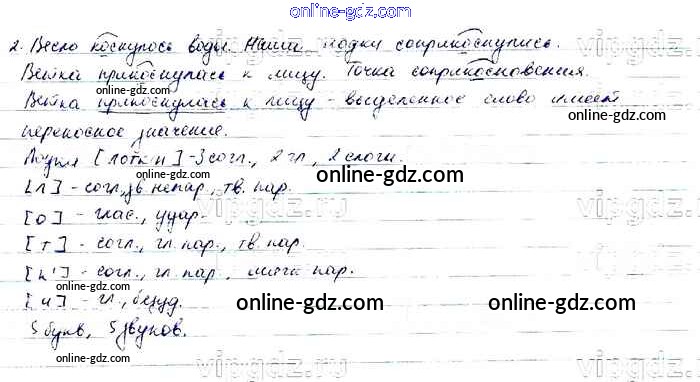 online-gdz.com
2. Весло коснулось воды. Наши лодки соприкоснулись.
Ветка прикоснулась к лицу. Точка соприкосновения.
online-gdz.com
Ветка прикоснулась к лицу - выделенное слово имеет
online-gdz.com
переносное значение.
[лотк'и] - 3 согл., 2 гл., 2 слога.
online-gdz.com
[л] - согл., зв. непар., тв. пар.
vipgdz.ru
online-gdz.com
[о] - глас., удар.
[т] - согл., гл. пар., тв. пар.
online-gdz.com
[к'] - согл., гл. пар., мягк. пар.
[и] - гл., безуд.
online-gdz.com
online-gdz.com
5 букв, 5 звуков.
online-gdz.com
vipgdz.ru